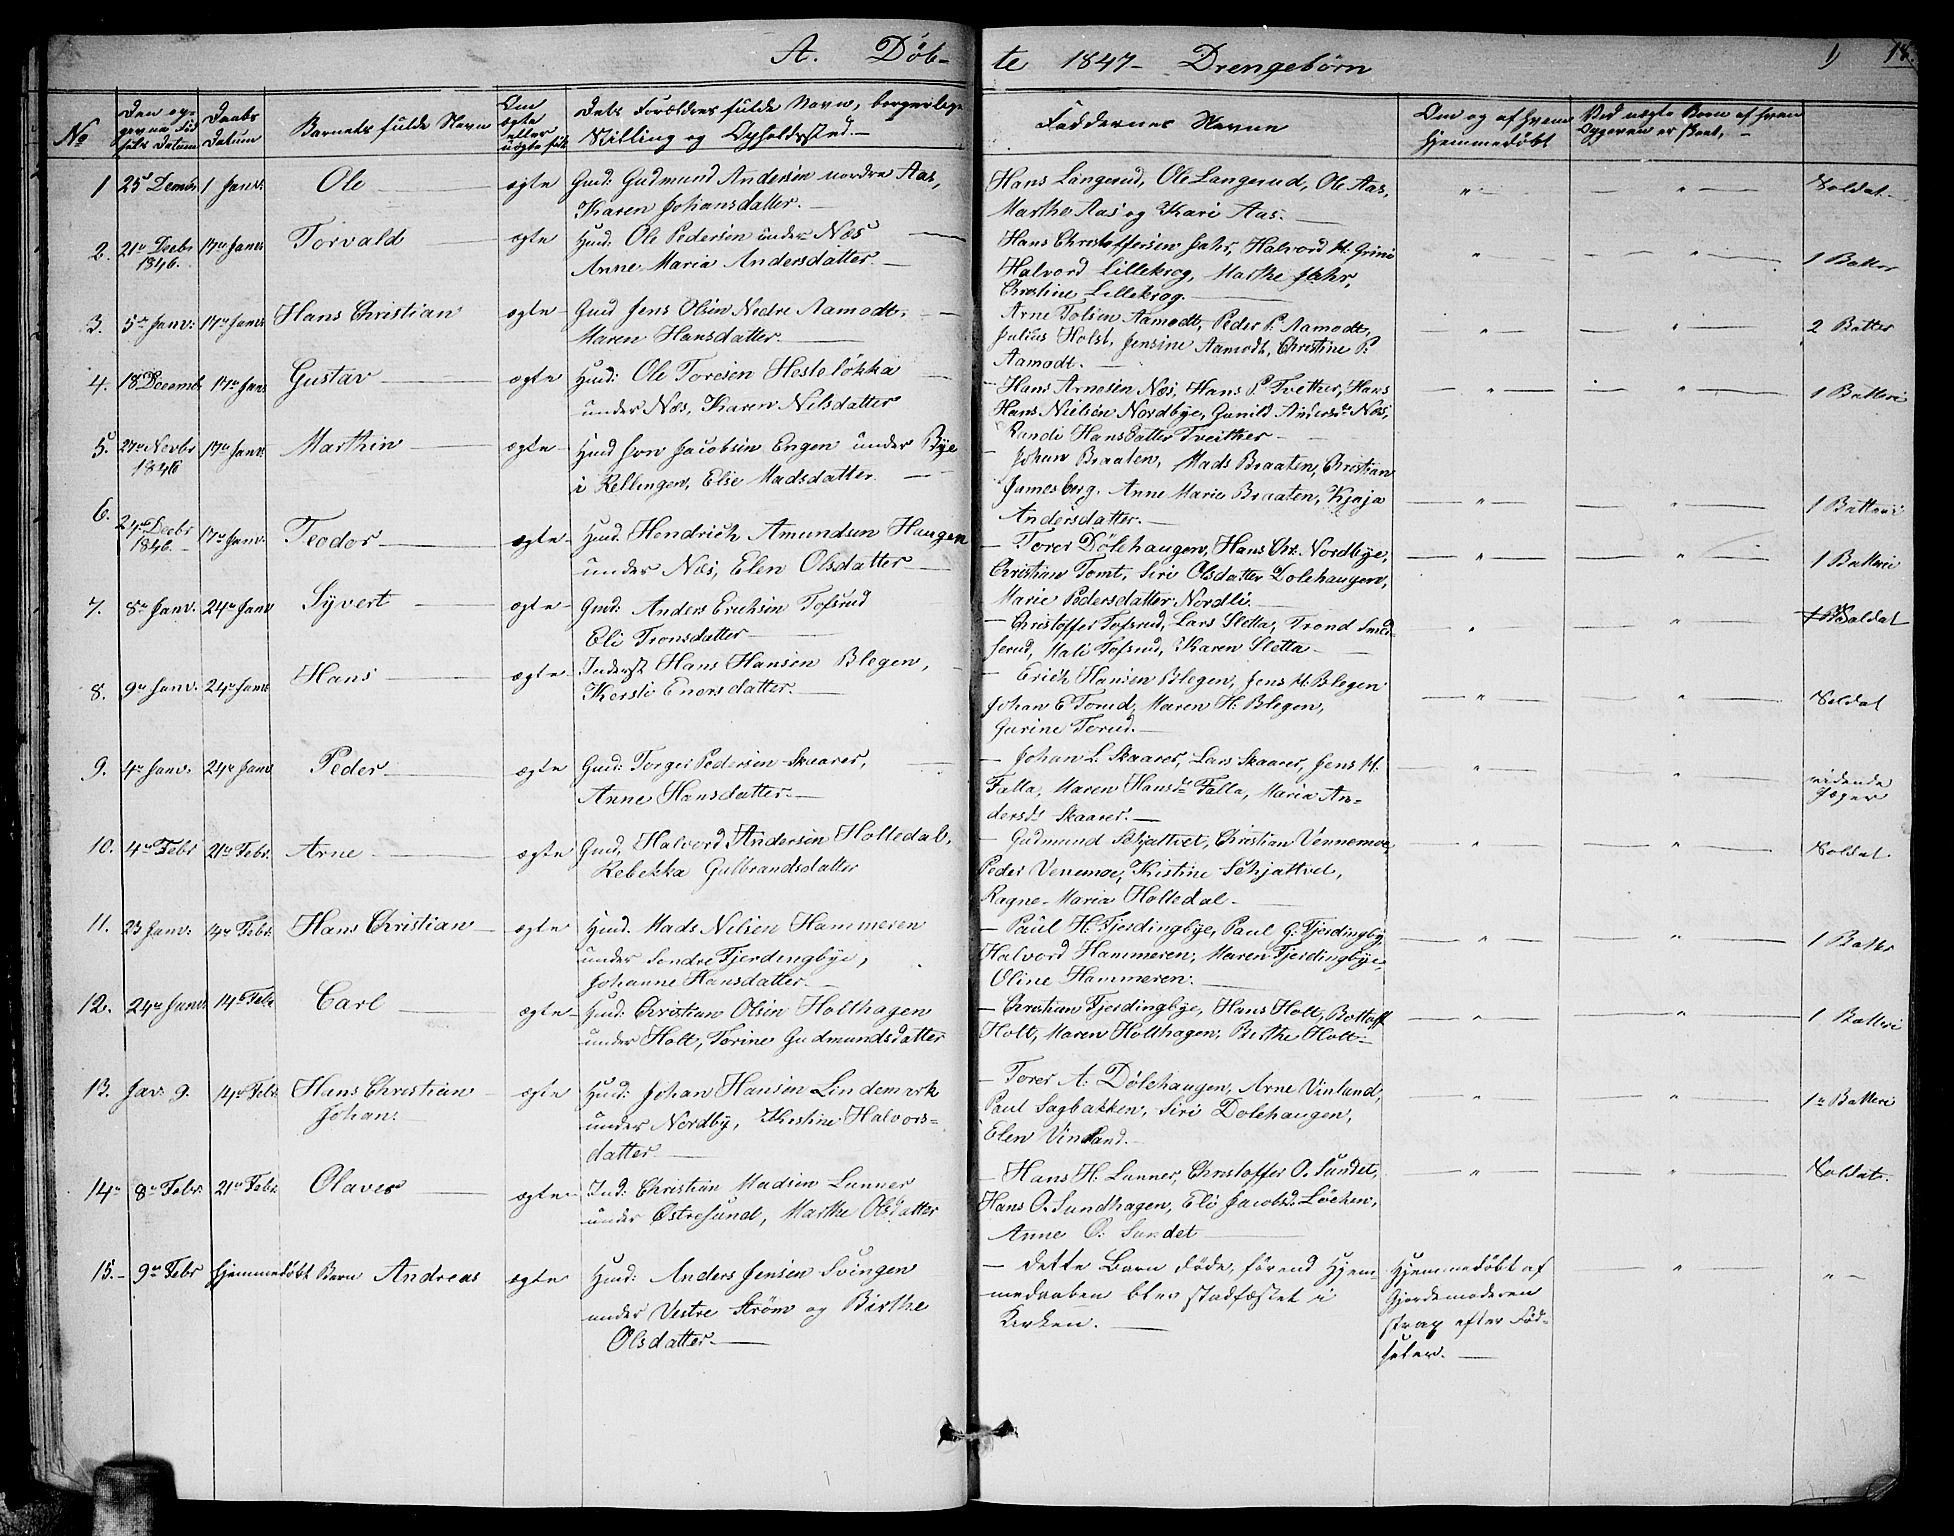 A. Døb-
te 1847- Drengebørn
18.
No
Barnets fulde Navn
Dets Forældres fulde Navn, borgerlige Stilling og Opholdssted.
Faddernes Navne
Om og af hvem Hjemmedøbt
1 25 Decmbr 1 Janv: Ole ægte Gmd: Gudmund Andersen nordre Aas,
Karen Johansdatter.
Hans Langerud, Ole Langerud, Ole Aas,
Marthe Aas og Kari Aas.
" " Soldat
2. 21de Decbr 1846. 17de Janv: Torvald ægte Hmd: Ole Pedersen under Næs
Anne Maria Andersdatter.
Hans Christoffersen Jahr, Halvord H. Grini
Halvord Lillekrog, Marthe Jahr,
Christine Lillekrog.
" " 1 Batter
3. 5te Janv: 17de Janv: Hans Christian ægte Gmd Jens Olsen Nedre Aamodt.
Maren Hansdatter.
Arne Tolsen Aamodt, Peder P. Aamodt,
Julius Holst, Jensine Aamodt, Christine P.
Aamodt.
" " 2 Batter
4. 18 Decemb. 17de Janv: Gustav ægte Hmd: Ole Toresen Hesteløkka
under Næs, Karen Nilsdatter
Hans Arnesen Næs, Hans P. Tvether, Hans
Hans Nielsen Nordbye, Gunild Anders. Næs,
Randi Hansdatter Tveither
" " 1 Batteri
5. 27de Novbr 1846 17de Janv: Marthin ægte Hmd Jon Jacobsen Engen under Bye
i Rellingen, Else Madsdatter.
Johan Braaten, Mads Braaten, Christian
Jamesberg. Anne Marie Braaten, Kjaja
Andersdatter.
" " 1 Batteri
6. 24de Decbr 1846. 17de Janv: Teodor ægte Hmd: Hendrich Amundsen Haugen
under Næs, Elen Olsdatter
Torer Dølehaugen, Hans Chr. Nordbye,
Christian Tomt, Siri Olsdatter Dolehaugen,
Marie Pedersdatter Nordli.
" " 1 Batteri
7. 8de Janv: 24de Janv Syvert ægte Gmd: Anders Erichsen Tofsrud
Eli Tronsdatter
Christoffer Tofsrud, Lars Sletta, Trond Smed-
serud, Mali Tofsrud, Karen Sletta
" " Soldat
8. 9de Janv: 24de Janv: Hans ægte Inderst Hans Hansen Blegen,
Kersti Enersdatter.
Erich Hansen Blegen, Jens H. Blegen
Johan E Torud, Maren H. Blegen,
Gurine Torud.
" " Soldat
9. 4de Janv: 24de Janv Peder ægte Gmd: Torger Pedersen Skaarer,
Anne Hansdatter.
Johan L. Skaarer, Lars Skaarer, Jens H.
Falla, Maren Hansdr Falla, Maria An-
dersdr Skaarer.
" " ridende Jæger
10. 4de Febr 21de Febr. Arne ægte Gmd. Halvord Andersen Holtedal,
Rebekka Gulbrandsdatter
Gudmund Schjattvet, Christian Vennemoe,
Peder Venemoe, Kristine Schjattvet,
Ragne-Maria Holtedal.
" " Soldat.
11. 23 Janv: 14de Febr. Hans Christian ægte Hmd. Mads Nilsen Hammeren
under Søndre Fjerdingbye,
Johanne Hansdatter.
Paul H. Fjerdingbye, Paul G. Fjerdingby
Halvord Hammeren, Maren Fjerdingbye,
Oline Hammeren.
" " 1 Batter
12. 24de Janv: 14de Febr Carl ægte Hmd: Christian Olsen Holthagen
under Holt, Torine Gudmundsdatter
Christian Fjerdingbye, Hans Holt, Bottolf
Holt, Maren Holthagen, Birthe Holt.
" " 1 Batteri
13. Jav: 9. 14de Febr. Hans Christian
Johan. ægte Hmd: Johan Hansen Lindemark
under Nordby, Kirstine Halvors-
datter
Torer A. Dølehaugen, Arne Vinland,
Paul Sagbakken, Siri Dolehaugen,
Elen Vinland.
" " 1 Batteri
14 8de Febr: 21de Febr. Olaves ægte Ind: Christian Madsen Lunner
under Østresund, Marthe Olsdatter
Hans H. Lunner, Christoffer O. Sundet,
Hans O. Sundhagen, Eli Jacobsdr Løcken,
Anne O. Sundet
" " Soldat.
15. 9de Febr Hjemmedøbt Barn Andreas ægte Hmd: Anders Jensen Svingen
under Vestre Strøm og Birthe
Olsdatter.
Dette Barn døde, førend Hjem-
medaaben blev stadfæstet i
Kirken.
Hjemmedøbt af
Gjordemoderen
strax efter Fød-
selen.
" "